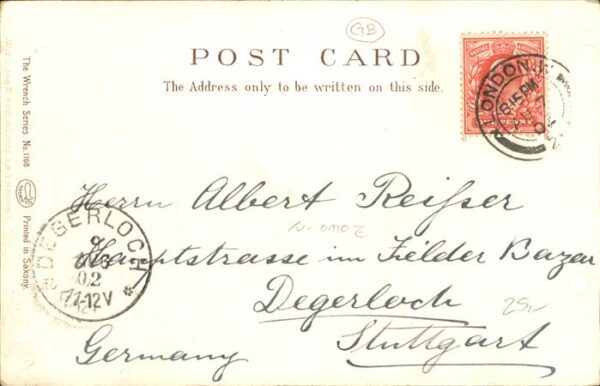 GB
POST CARD
The Address only to be written on this side.
LONDON. W
8.15 PM
02
PENNY
Herrn Albert Reißer
Hauptstrasse im Filder Bazar
Degerloch
Stuttgart
Germany
25,-
DEGERLOCH
02
11-12V
The Wrench Series No. 1166
Printed in Saxony.